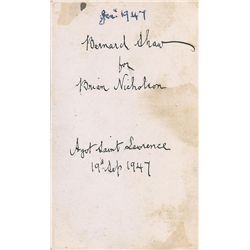 1947
Bernard Shaw
for
Brian Nicholson
Ayot Saint Lawrence
19th Sep 1947